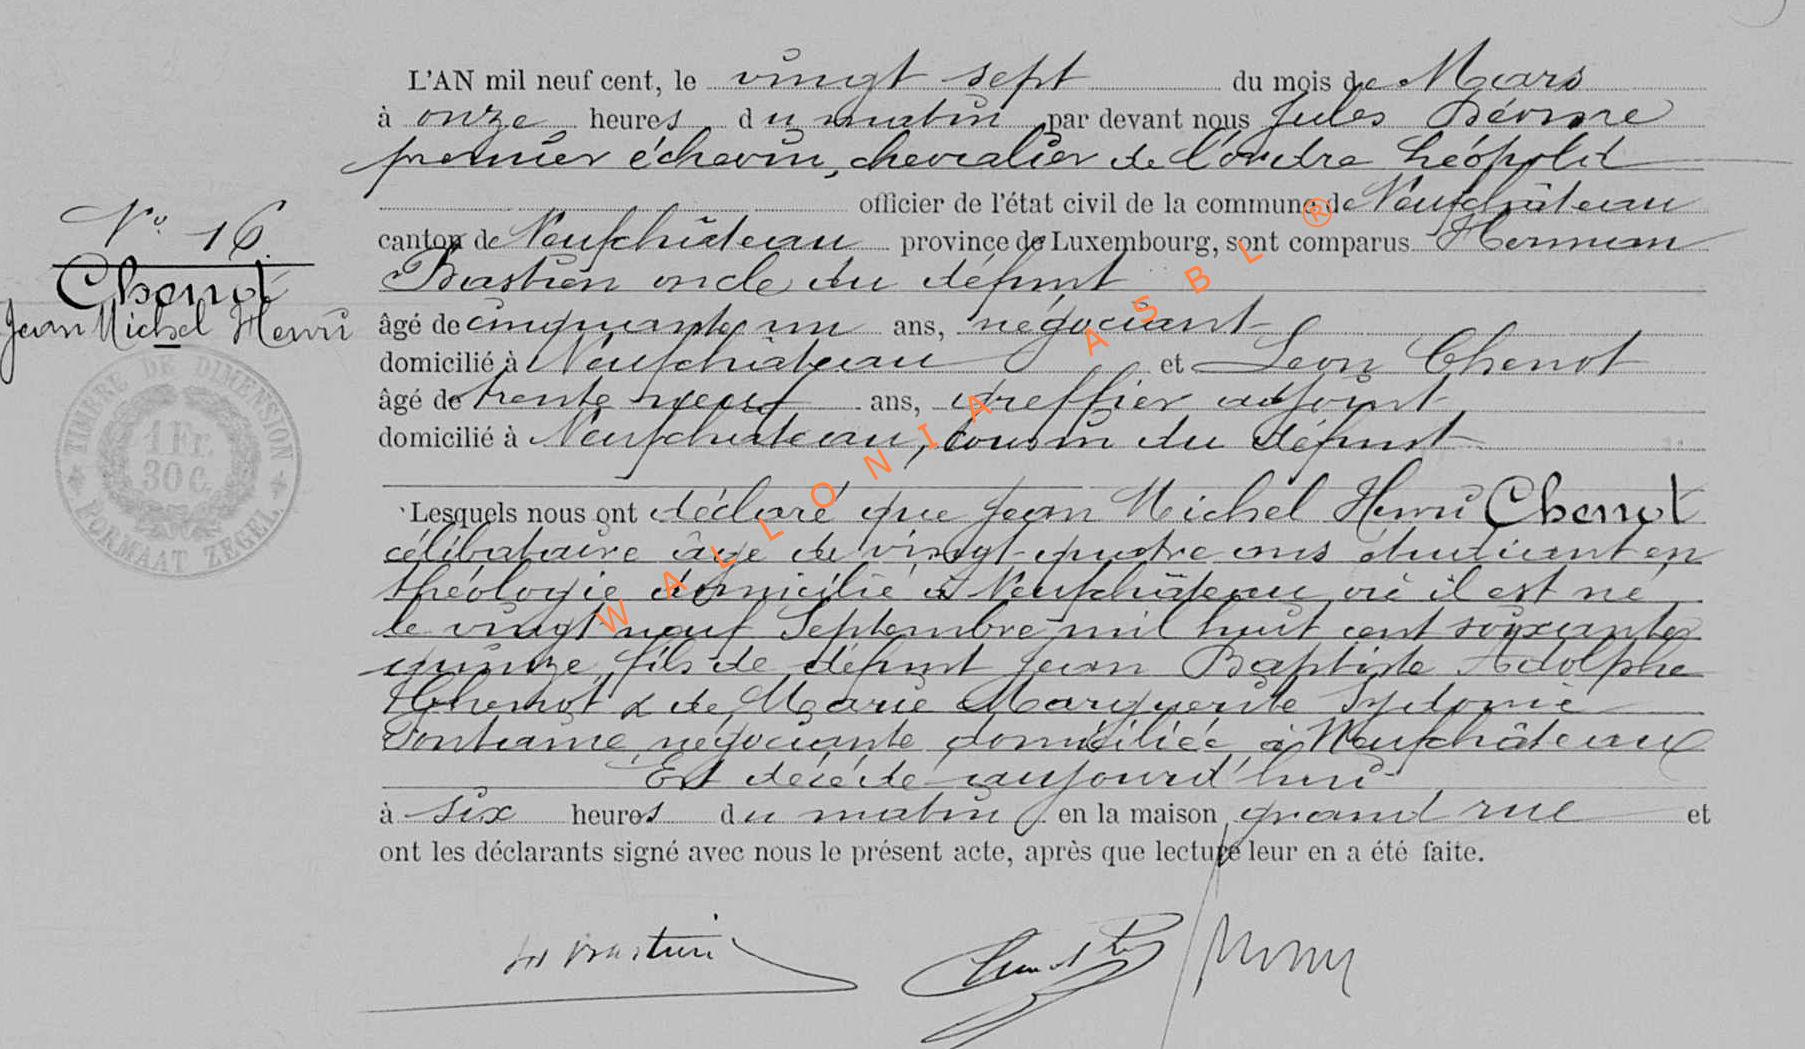 L'AN mil neuf cent, le vingt sept du mois de Mars
à onze heures du matin par devant nous Jules
premier échevin, chevalier de l'ordre Léopold
officier de l'état civil de la commune de Neufchâteau
N° 16
canton de Neufchâteau province de Luxembourg, sont comparus Herman
Bastien oncle du défunt
Chenot
Jean Michel Henri
âgé de cinquante un ans, négociant
domicilié à Neufchâteau et Léon Chenot
âgé de trente neuf ans, greffier adjoint
domicilié à Neufchâteau, cousin du défunt
TIMBRE DE DIMENSION
1 Fr.
30 c.
FORMAAT ZEGEL
Lesquels nous ont déclaré que Jean Michel Henri Chenot
célibataire âgé de vingt-quatre ans étudiant en
théologie domicilié à Neufchâteau où il est né
le vingt neuf Septembre mil huit cent soixante
quinze, fils de défunt Jean Baptiste Adolphe
Chenot & de Marie Marguerite Sydonie
négociante domiciliée à Neufchâteau
Est décédé aujourd'hui
à six heures du matin en la maison grand rue et
ont les déclarants signé avec nous le présent acte, après que lecture leur en a été faite.
WALLONIA ASBL ®